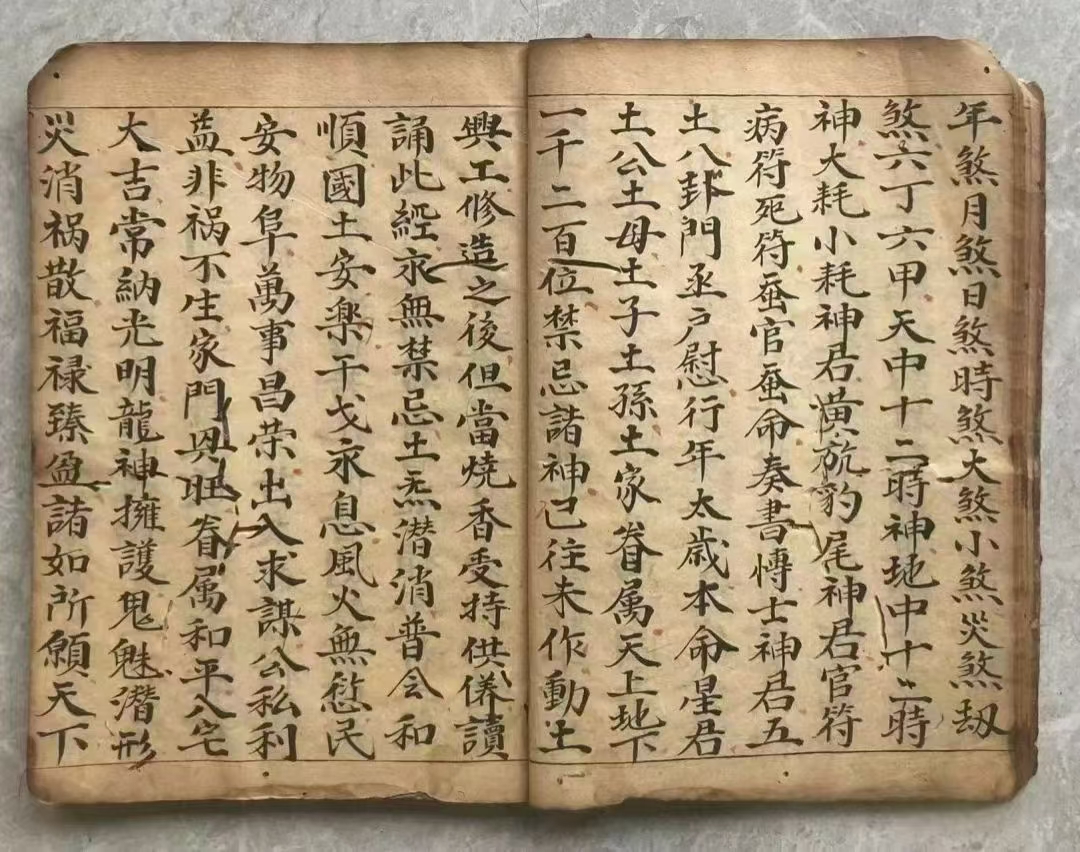 年煞月煞日煞時煞大煞小煞災煞劫
煞六丁六甲天中十二時神地中十二時
神大耗小耗神君黃旛豹尾神君官符
病符死符蚕官蚕命奏書愽士神君五
土八卦門丞户慰行年太歲本命星君
土公土母土子土孫土家眷属天上地下
一千二百位禁忌諸神已往未作動土
興工修造之後但當燒香受持供养讀
誦此經永無禁忌土炁潛消普令和
順國土安樂干戈永息風火無愆民
安物阜萬事昌荣出入求謀公私利
益非祸不生家門興旺眷属和平八宅
大吉常納光明龍神擁護鬼魅潛形
災消祸散福禄臻盈諸如所願天下